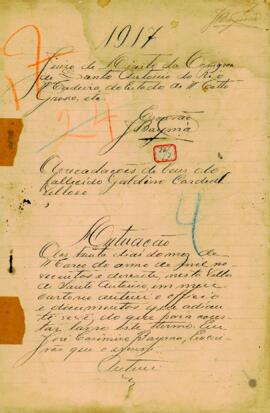 1917
Juizo de Direito da Comarca
de Santo Antonio do Rio
Madeira, do Estado de Matto
Grosso, etc
Escrivão
J. Bayma
Arrecadações de bens do
fallecido Galdino Cardial
Vellozo
4
Autuação
Aos trinta dias do mez de
Março do anno de mil no-
vecentos e dezesete, nesta Villa
de Santo Antonio, em meu
cartorio autuei o officio
e documentos que adian-
te se vê, do que para cons-
tar lavro este termo. Eu
José Casimiro Bayma, Escri-
vão que o escrevi.